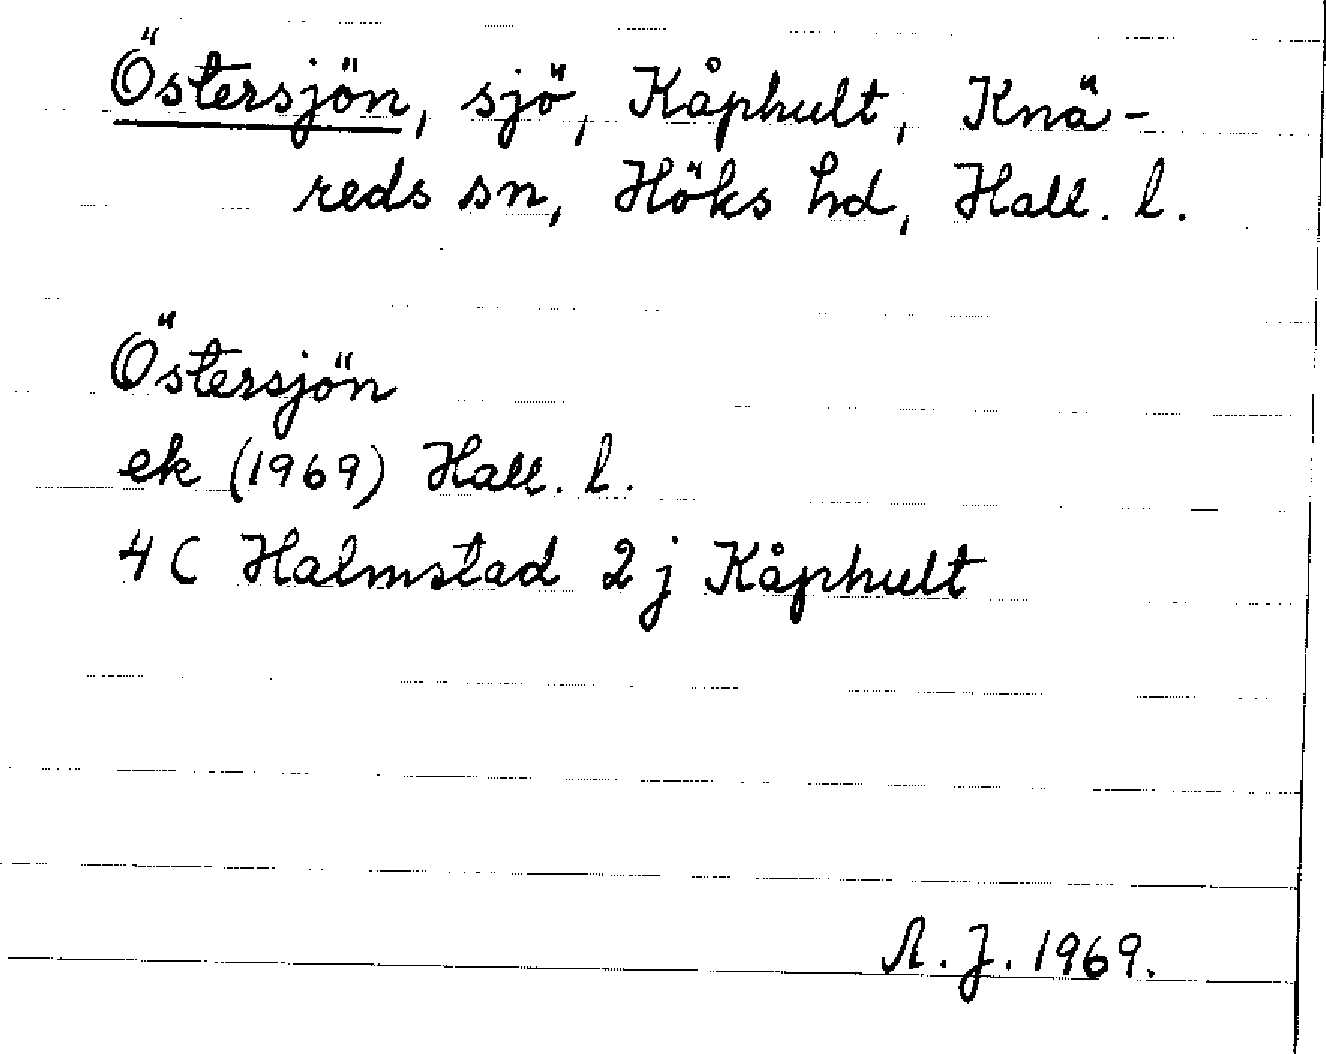 Östersjön, sjö, Kåphult, Knä-
reds sn, Höks hd, Hall. l.
Östersjön
ek (1969) Hall. l.
4C Halmstad 2j Kåphult
A. J. 1969.